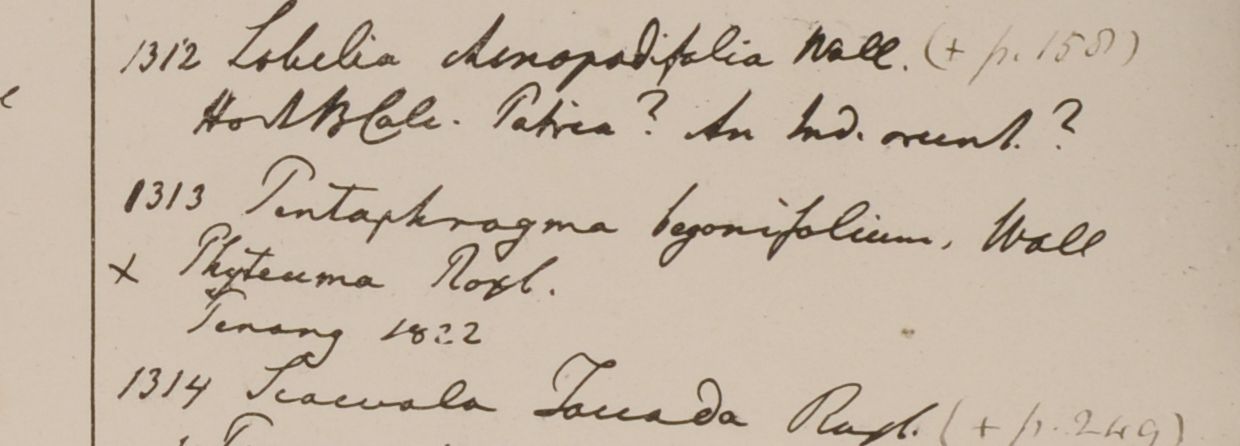 1312 Lobelia chenopodifolia Wall. (+ p. 158)
Hort B Calc. Patria? An Ind. orient.?
1313 Pentaphragma begonifolium, Wall
x Phyteuma Roxb.
Penang 1822
1314 Scaevola Taccada Roxb. (+ p. 249)